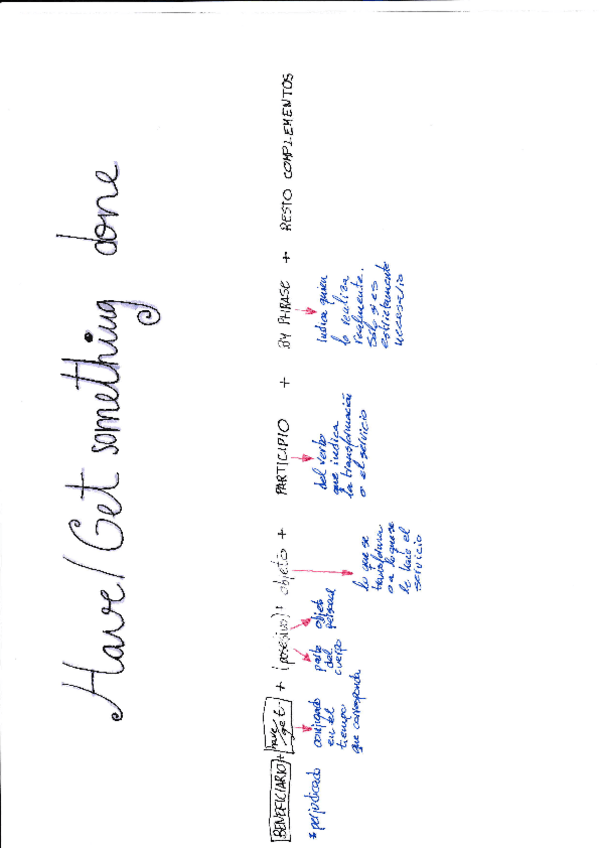 Have/Get something done
BENEFICIARIO + have/get + (posesivo) + objeto + PARTICIPIO + BY PHRASE + RESTO COMPLEMENTOS
*perjudicado
conjugado
en el
tiempo
que corresponda
parte
del
cuerpo
objeto
personal
lo que se
transforma
o a lo que se
le hace el
servicio
del verbo
que indica
la transformación
o el servicio
indica quien
lo realiza
realmente.
Sólo si es
estrictamente
necesario